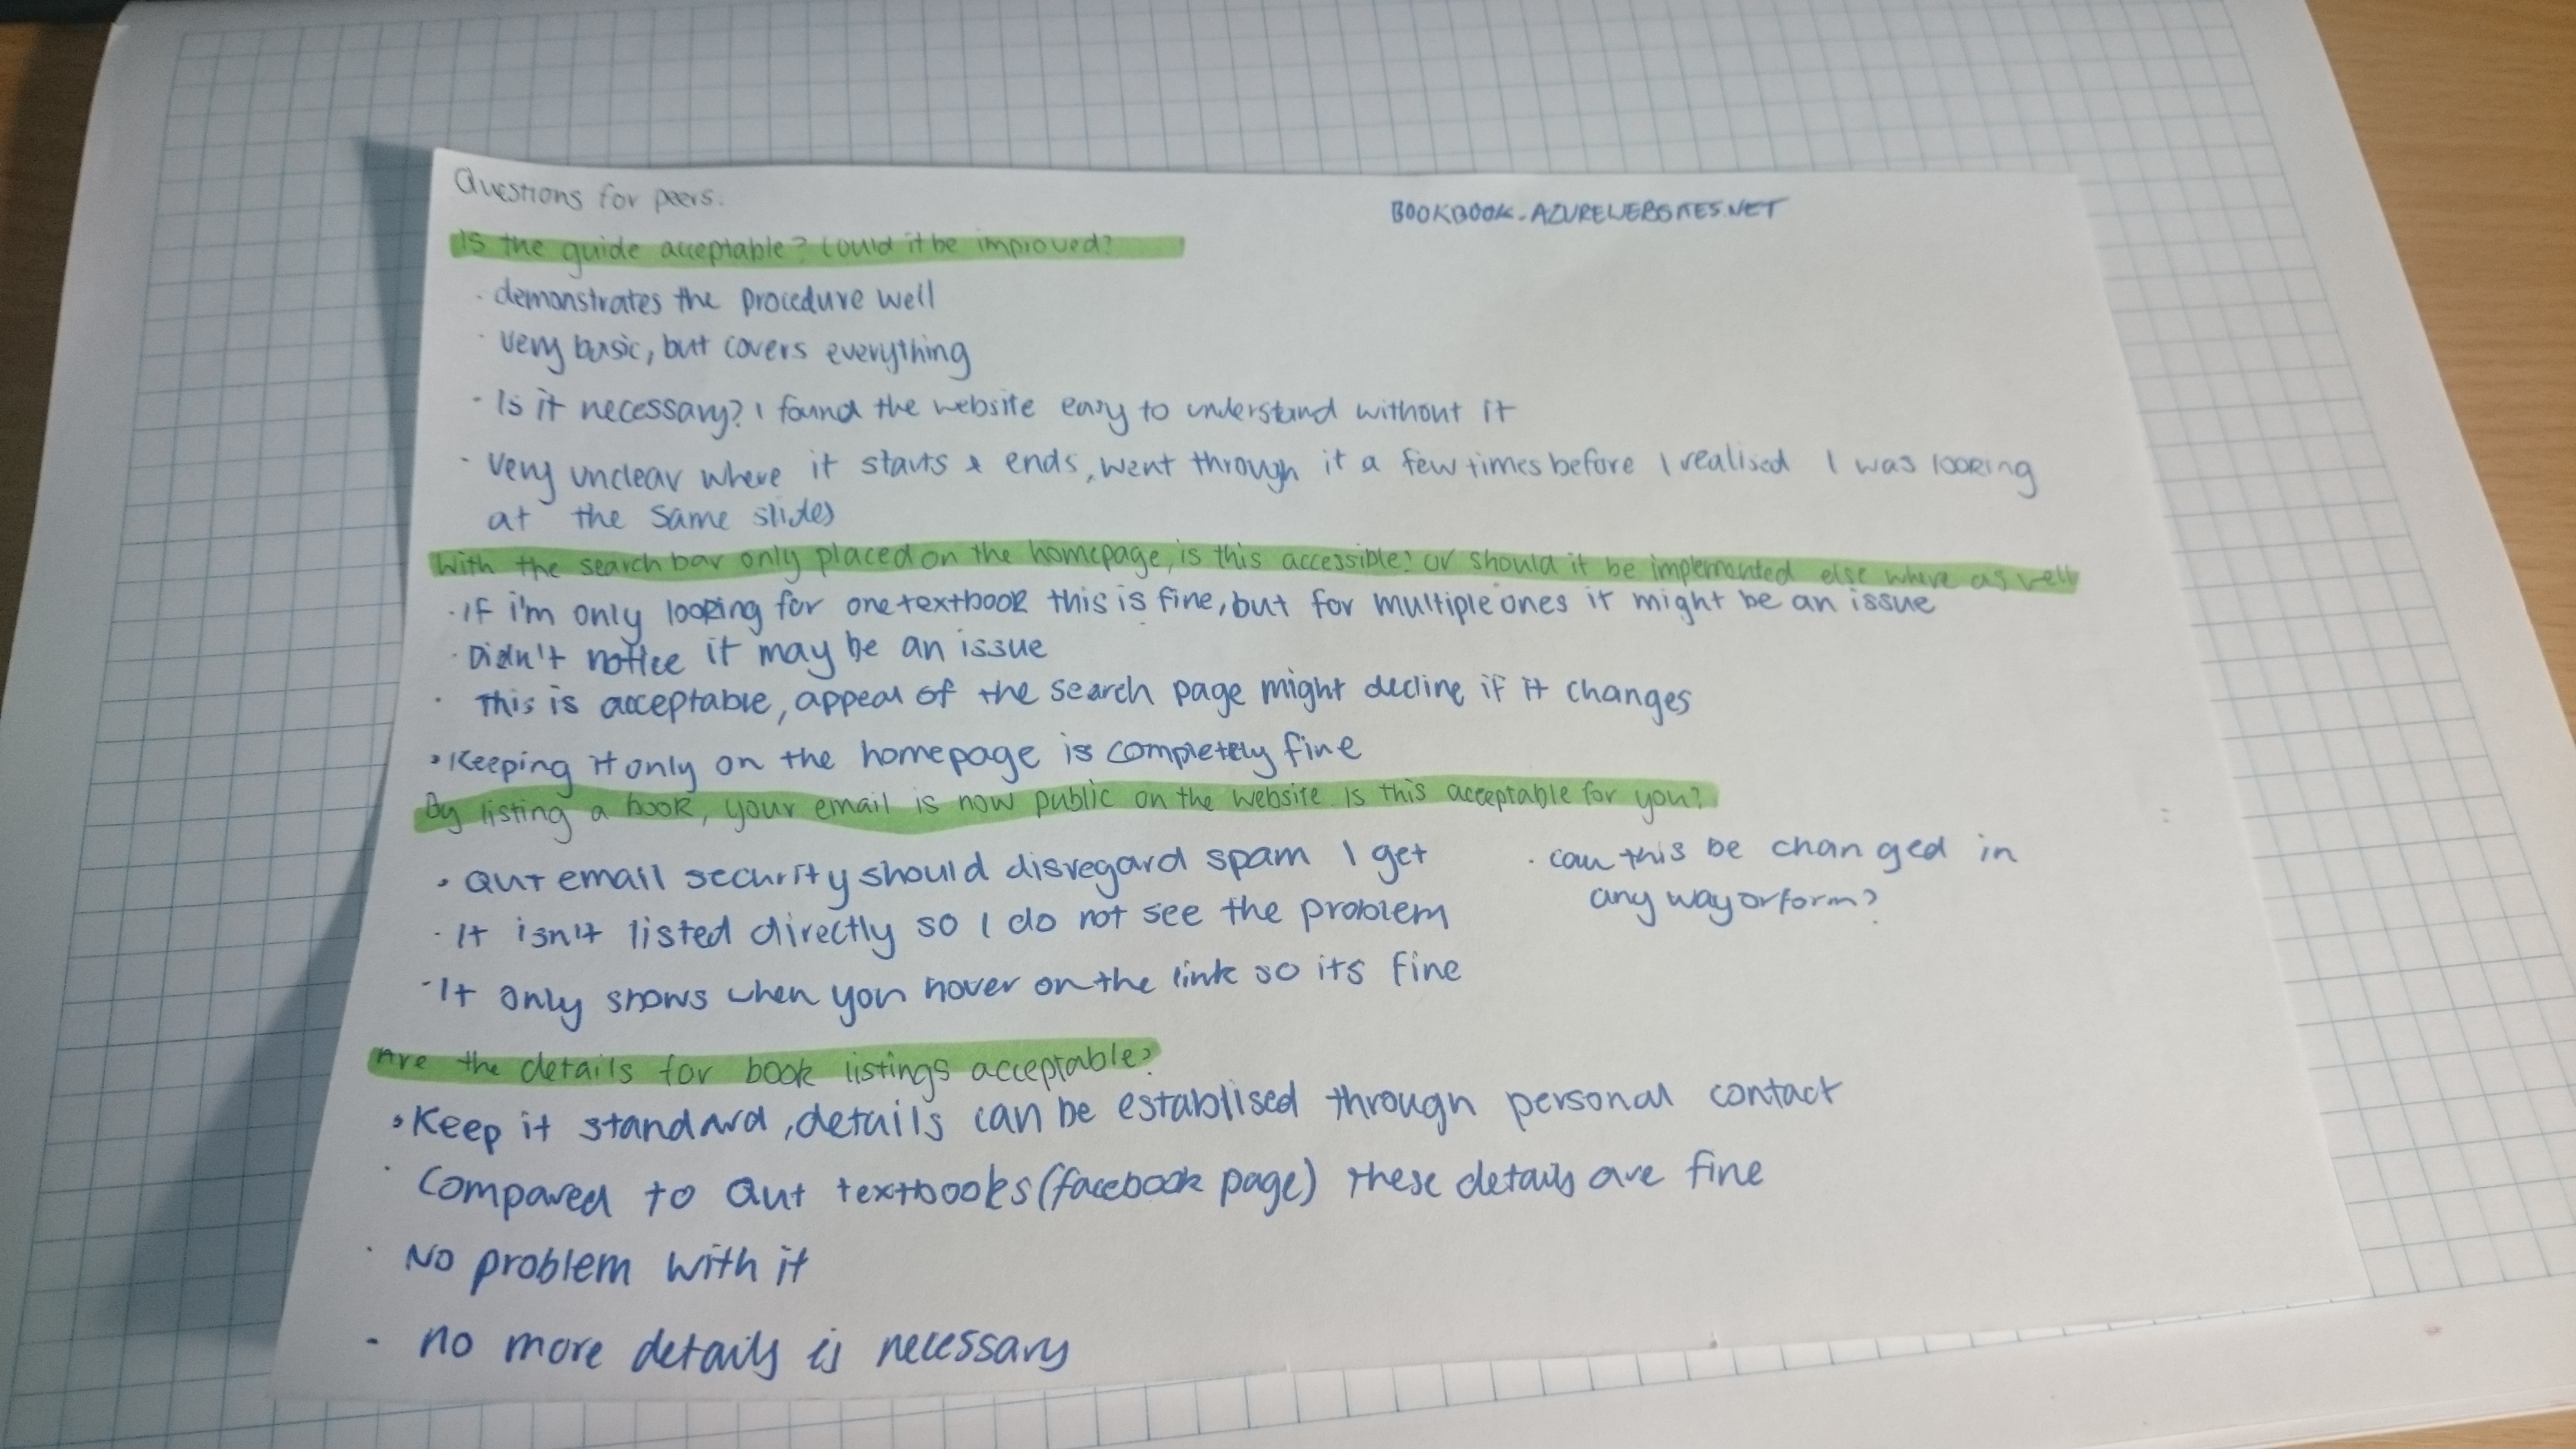 Questions for peers.
BOOKBOOK.AZUREWEBSITES.NET
Is the guide acceptable? Could it be improved?
· demonstrates the procedure well
· very basic, but covers everything
· Is it necessary? I found the website easy to understand without it
- very unclear where it starts & ends, went through it a few times before I realised I was looking
at the same slides
With the search bar only placed on the homepage, is this accessible? or should it be implemented else where as well
· If i'm only looking for one textbook this is fine, but for multiple ones it might be an issue
· Didn't notice it may be an issue
· This is acceptable, appeal of the search page might decline if it changes
· Keeping it only on the homepage is completely fine
By listing a book, your email is now public on the website. Is this acceptable for you?
· QUT email security should disregard spam I get
· It isn't listed directly so I do not see the problem
· It only shows when you hover on the link so its fine
· can this be changed in
any way or form?
Are the details for book listings acceptable?
· Keep it standard, details can be establised through personal contact
· Compared to Qut textbooks (facebook page) these details are fine
· No problem with it
- no more details is necessary